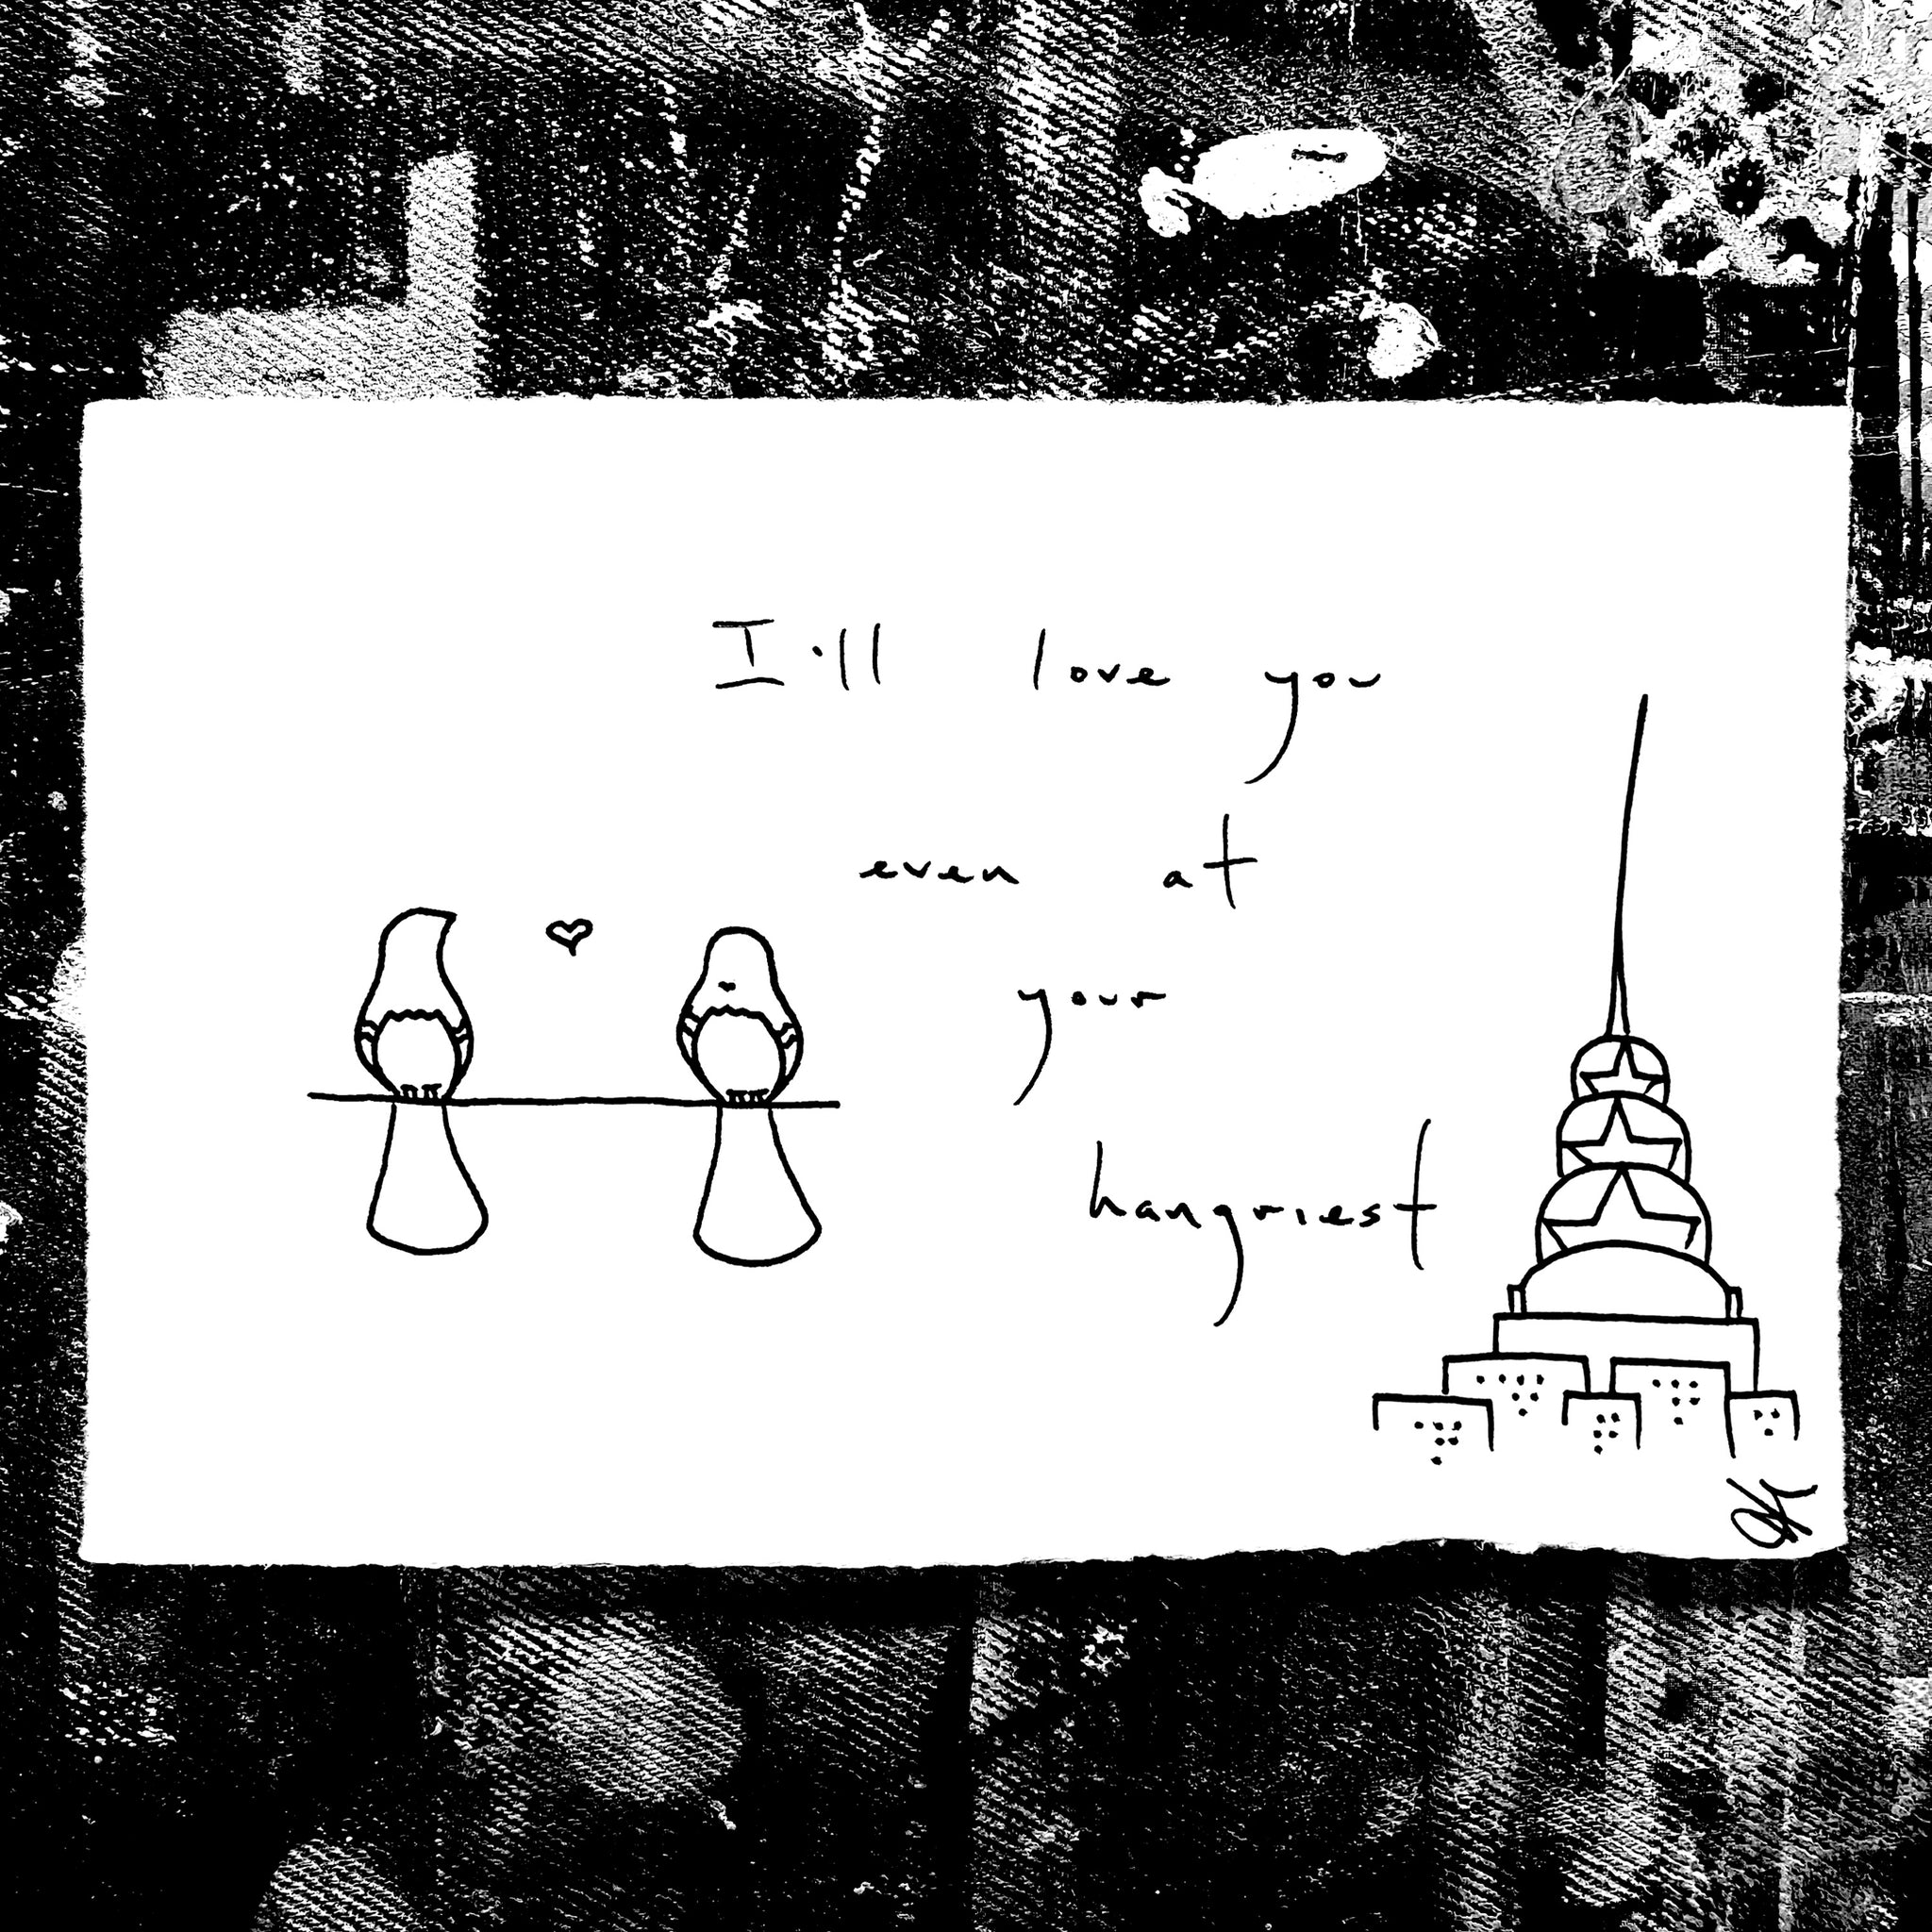 I'll love you
even at
your
hangriest